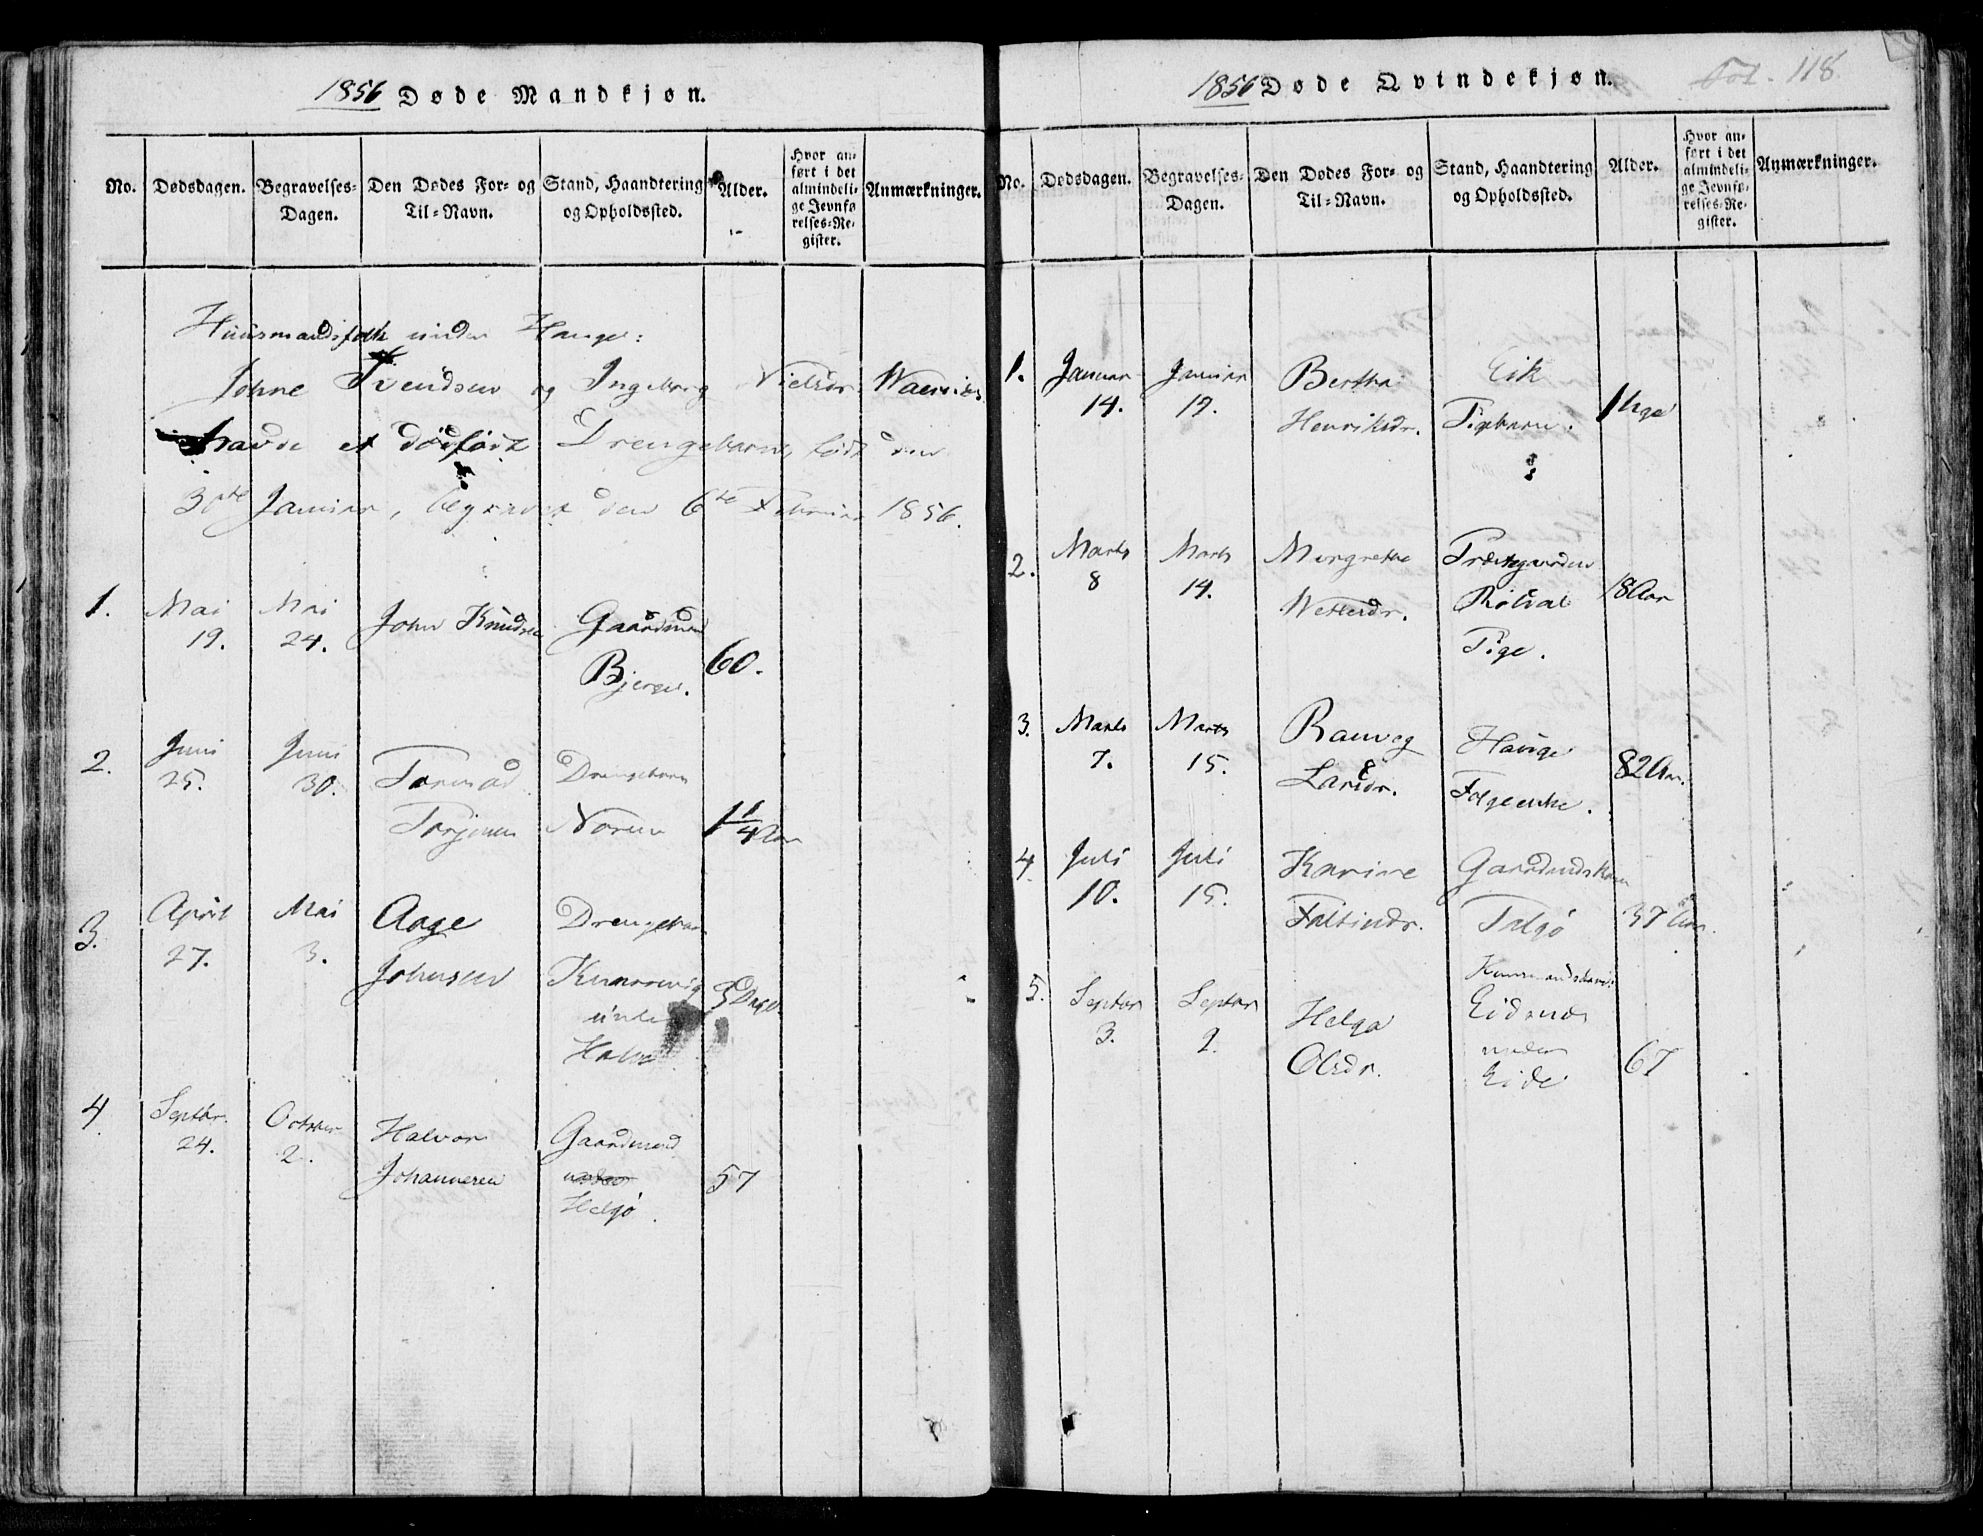 1856 Døde Mandkjøn.
No. Dødsdagen. Begravelses-Dagen. Den Dødes For- og Til-Navn. Stand, Haandtering og Opholdssted. Alder. Hvor anført i det almindelige Jevnførelses-Register. Anmærkninger.
Huusmandsfolk under Hauge:
Johne Svendsen og Ingeborg Nielsdr.
havde et dødfødt Drengebarn, født den
30te Januar, begravet den 6te Februar 1856.
1. Mai 19. Mai 24. John Knudsen Gaardmand Bjergv. 60.
2. Juni 25. Juni 30. Tormod Torjusen Drengebarn 1 1/4 Aar
3. April 27. Mai 3. Aage Johnsen Drengebarn under 5 Dage
4. Septbr. 24. October 2. Halvor Johannesen Gaardmand under Helgø. 57
1856 Døde Qvindekjøn. Fol. 118.
No. Dødsdagen. Begravelses-Dagen. Den Dødes For- og Til-Navn. Stand, Haandtering og Opholdssted. Alder. Hvor anført i det almindelige Jevnførelses-Register. Anmærkninger.
1. Januar 14. Januar 19. Bertha Henriksdr. Eik Pigebarn. 1 Uge
2. Marts 8 Marts 14. Margrethe Pige. 18 Aar
3. Marts 7. Marts 15. Ranveg Larsdr. Hauge Folgeenke. 82 Aar.
4. Juli 10. Juli 15. Karine Faltinsdr. Gaardmandskone Talgø 37 Aar.
5. Septbr 3. Septbr 9. Helga Olsdr. Huusmandskone Eidsnes under Eide 67